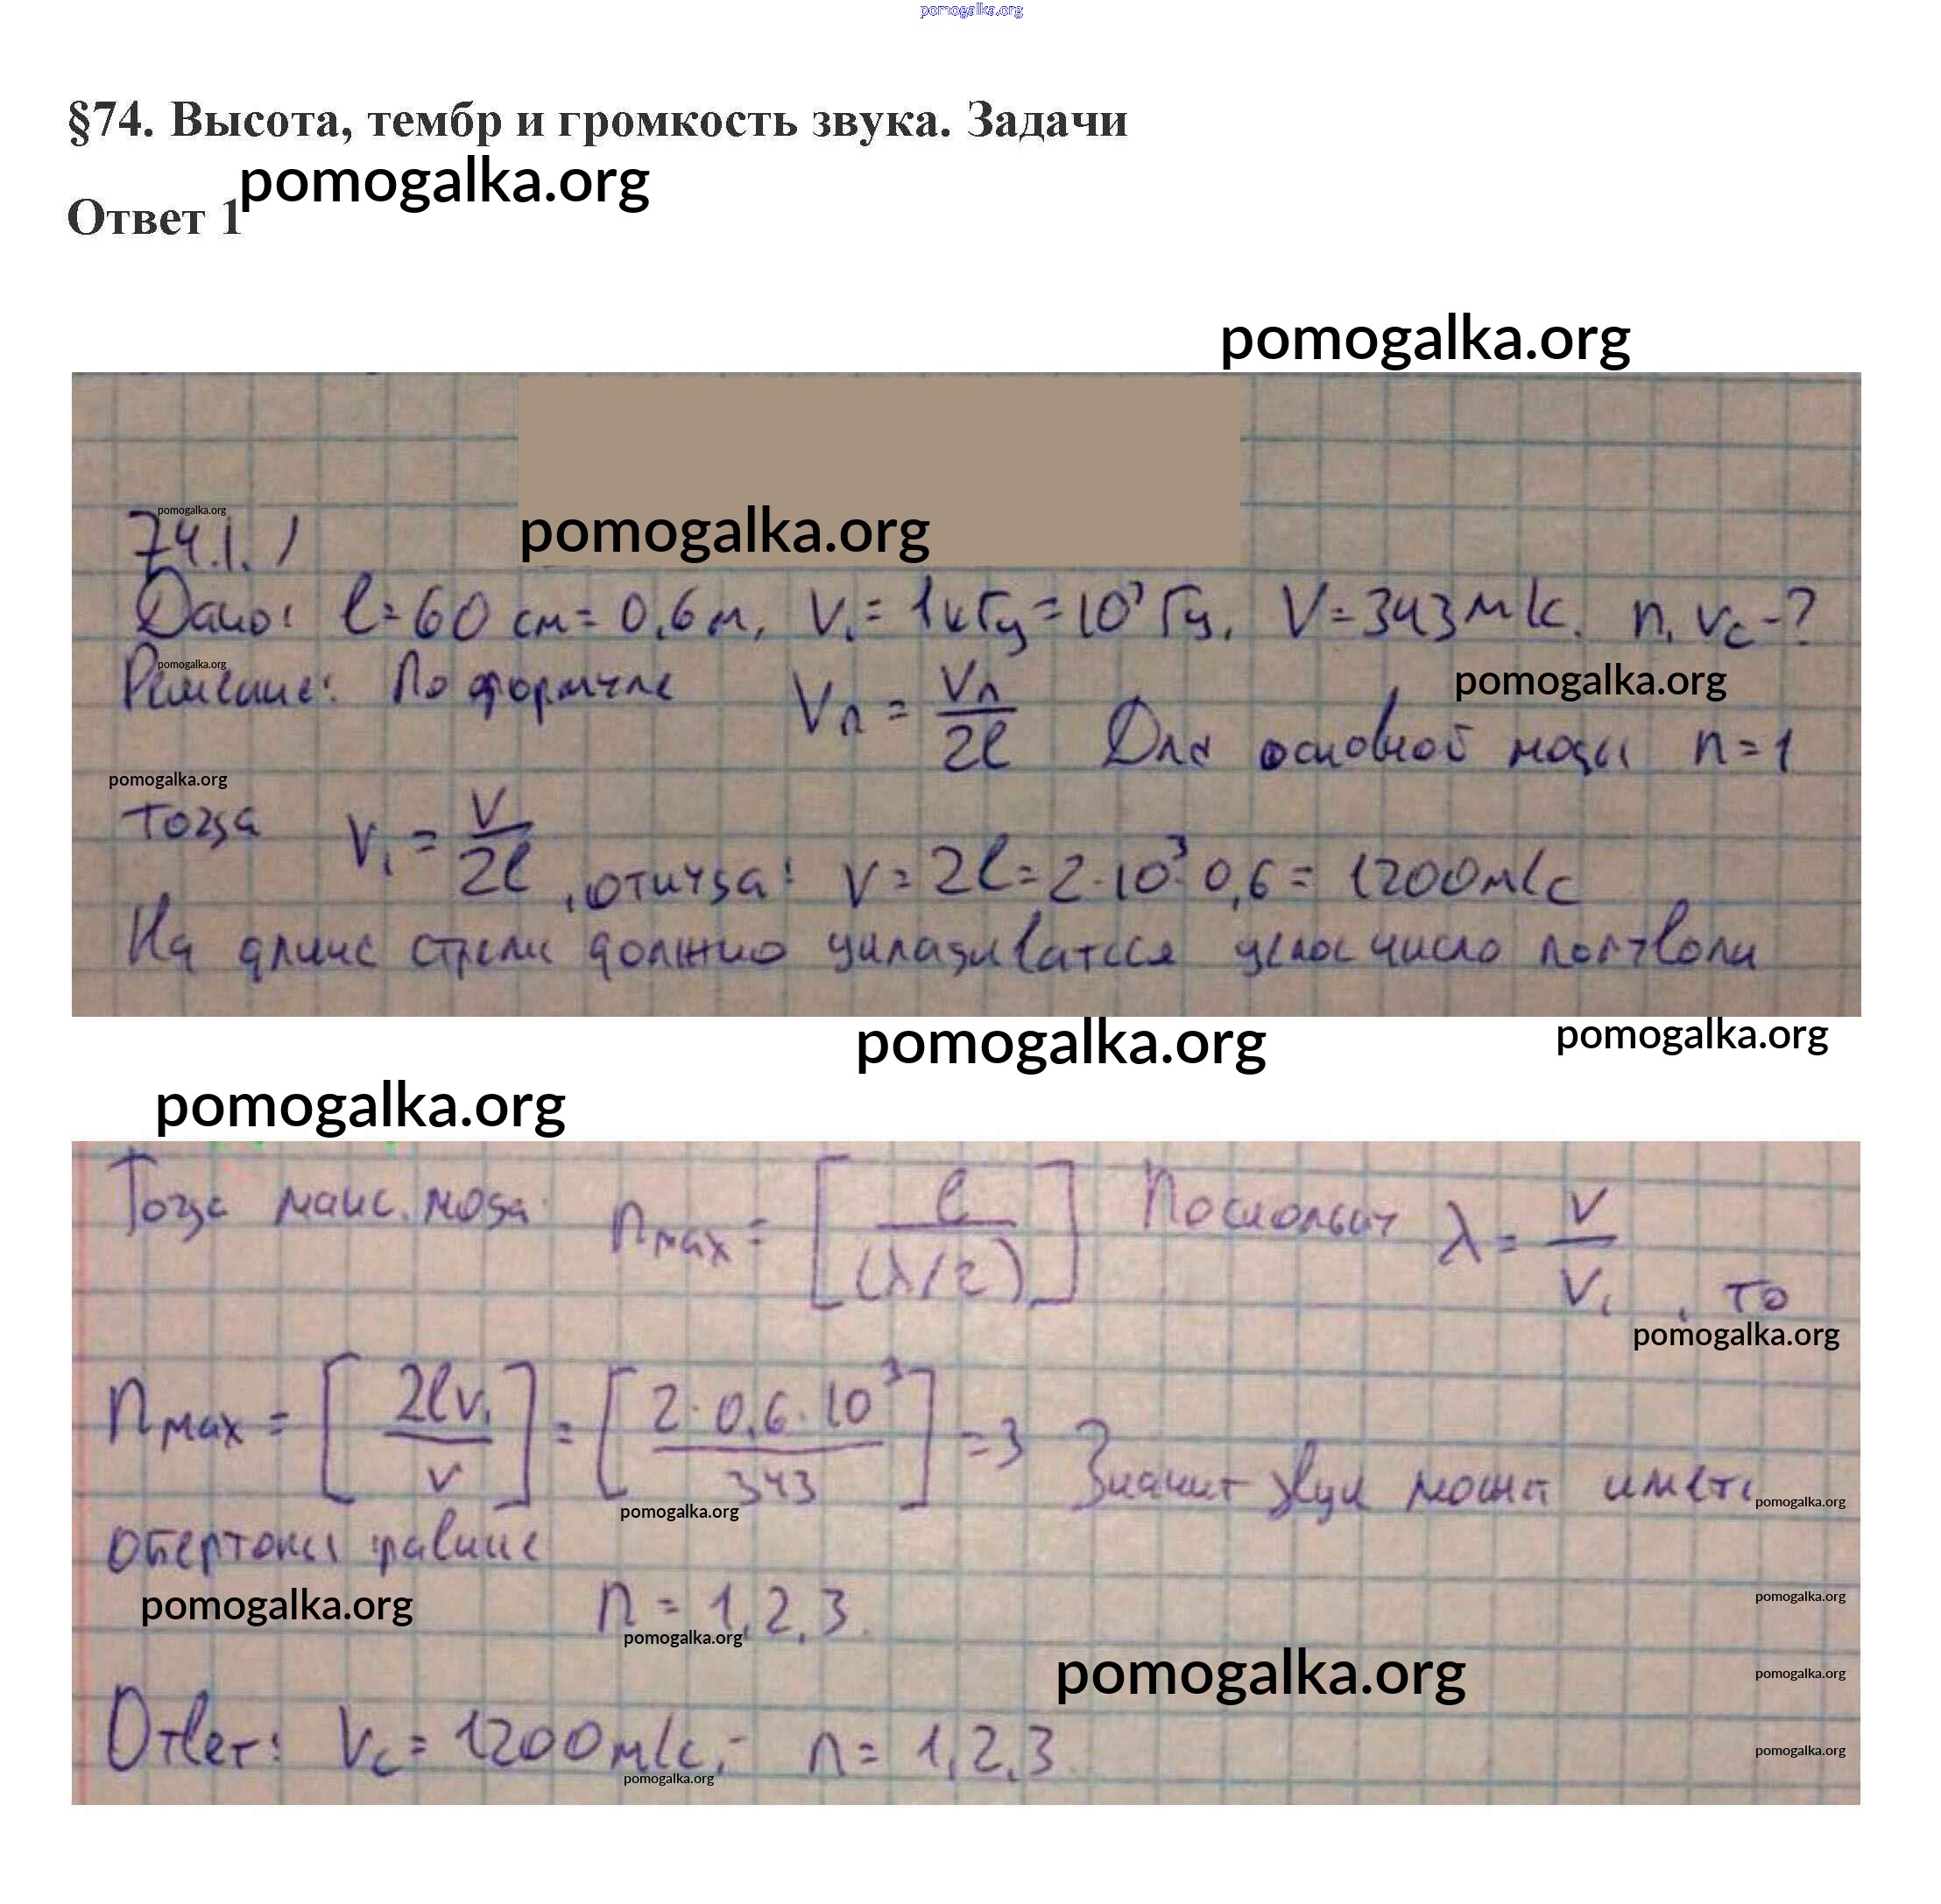 pomogalka.org
§74. Высота, тембр и громкость звука. Задачи
pomogalka.org
Ответ 1
pomogalka.org
pomogalka.org
pomogalka.org
74.1.)
Дано: l = 60 см = 0,6 м, ν₁ = 1 кГц = 10³ Гц, V = 343 м/с. n, vc - ?
pomogalka.org
Решение: По формуле νn = vn/2l Для основной моды n = 1
pomogalka.org
pomogalka.org
Тогда ν₁ = v/2l, откуда: v = 2l = 2·10³·0,6 = 1200 м/с
На длине стрелы должно укладываться целое число полуволн
pomogalka.org pomogalka.org
pomogalka.org
Тогда макс. мода nмах = [l/(λ/2)] Поскольку λ = v/ν₁, то
pomogalka.org
nмах = [2lν₁/v] = [2·0,6·10³/343] = 3 Значит звук может иметь
pomogalka.org pomogalka.org
обертоны равные
pomogalka.org pomogalka.org
n = 1,2,3.
pomogalka.org
pomogalka.org pomogalka.org
Ответ: vc = 1200 м/с; n = 1,2,3
pomogalka.org pomogalka.org